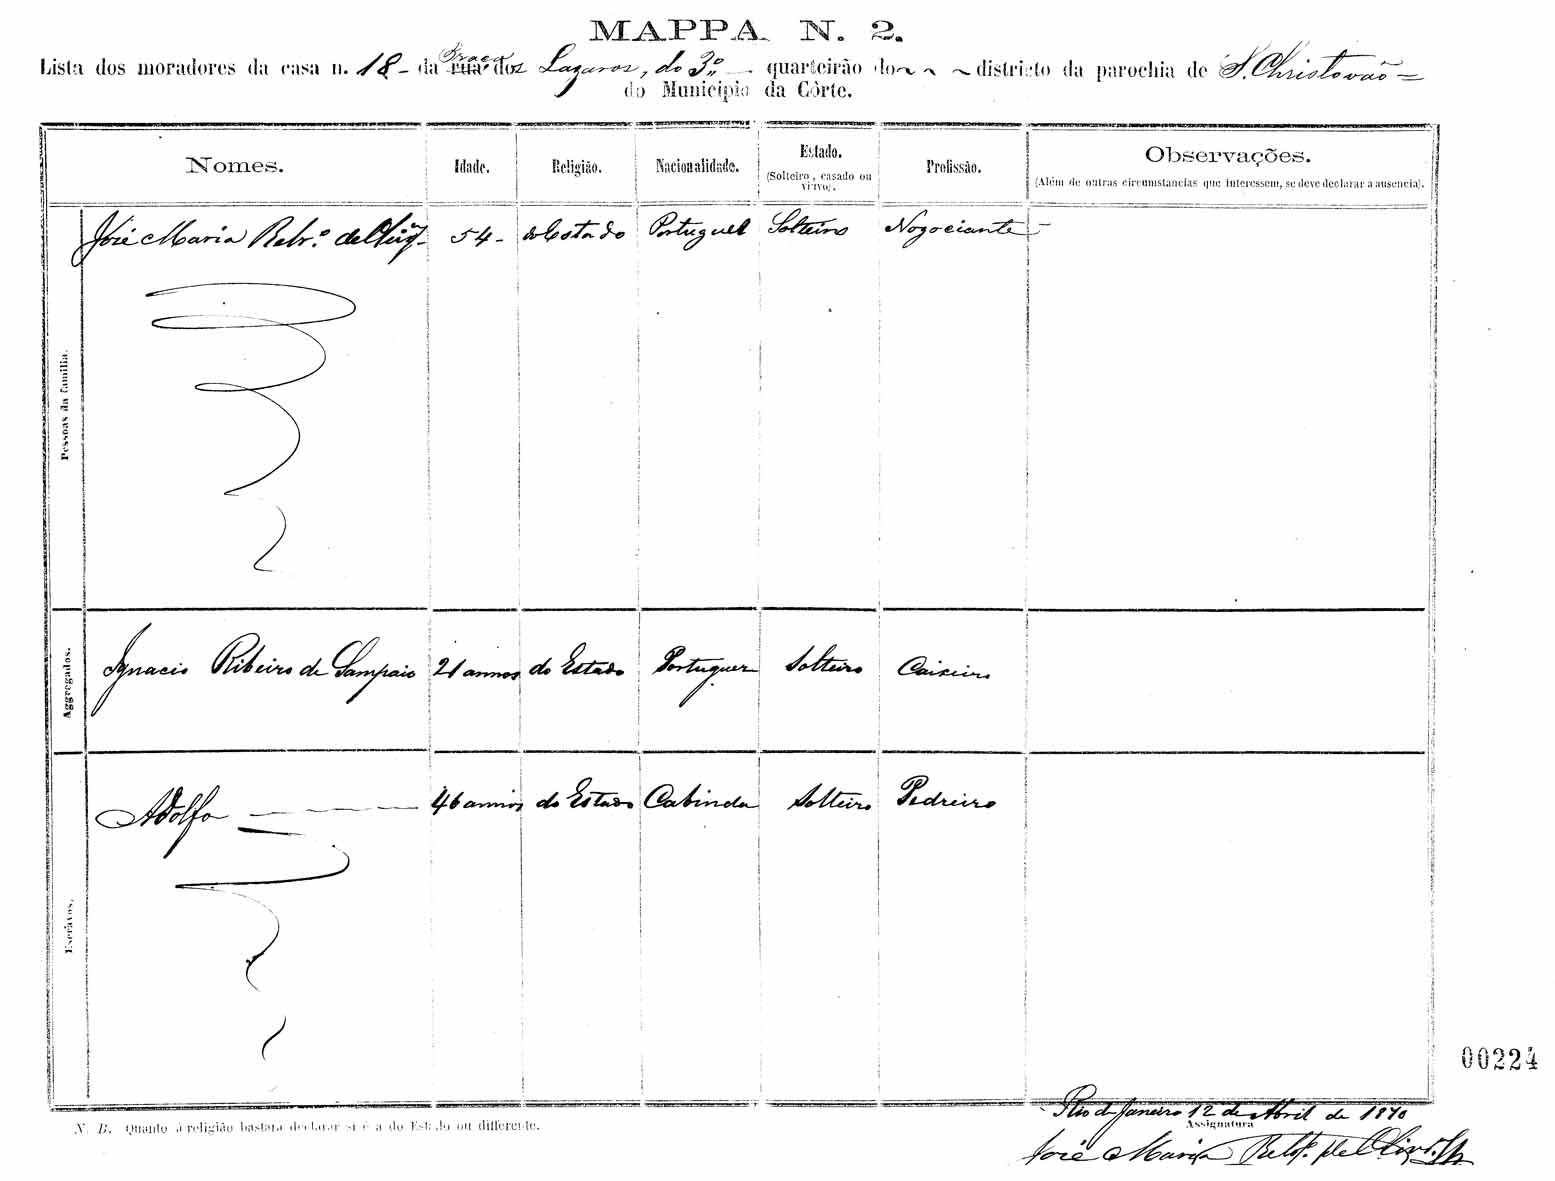 MAPPA N. 2.
Lista dos moradores da casa n. 18 - da rua Praça dos Lazaros, do 3º quarteirão do districto da parochia de S. Christovão
do Municipio da Côrte.
Nomes. Idade. Religião. Nacionalidade. Estado. Profissão. Observações.
(Solteiro, casado ou viuvo). (Além de outras circumstancias que interessem, se deve declarar a ausencia).
Pessoas da familia.
José Maria de 54 - do Estado Portuguez Solteiro Nogociante
Aggregados.
Ignacio Ribeiro de Sampaio 21 annos do Estado Portuguez Solteiro Caixeiro
Escravos.
Adolfo 46 annos do Estado Cabinda Solteiro Pedreiro
00224
Rio de Janeiro 12 de Abril de 1870
N. B. Quanto á religião bastará declarar si é a do Estado ou differente.
Assignatura
José Maria de